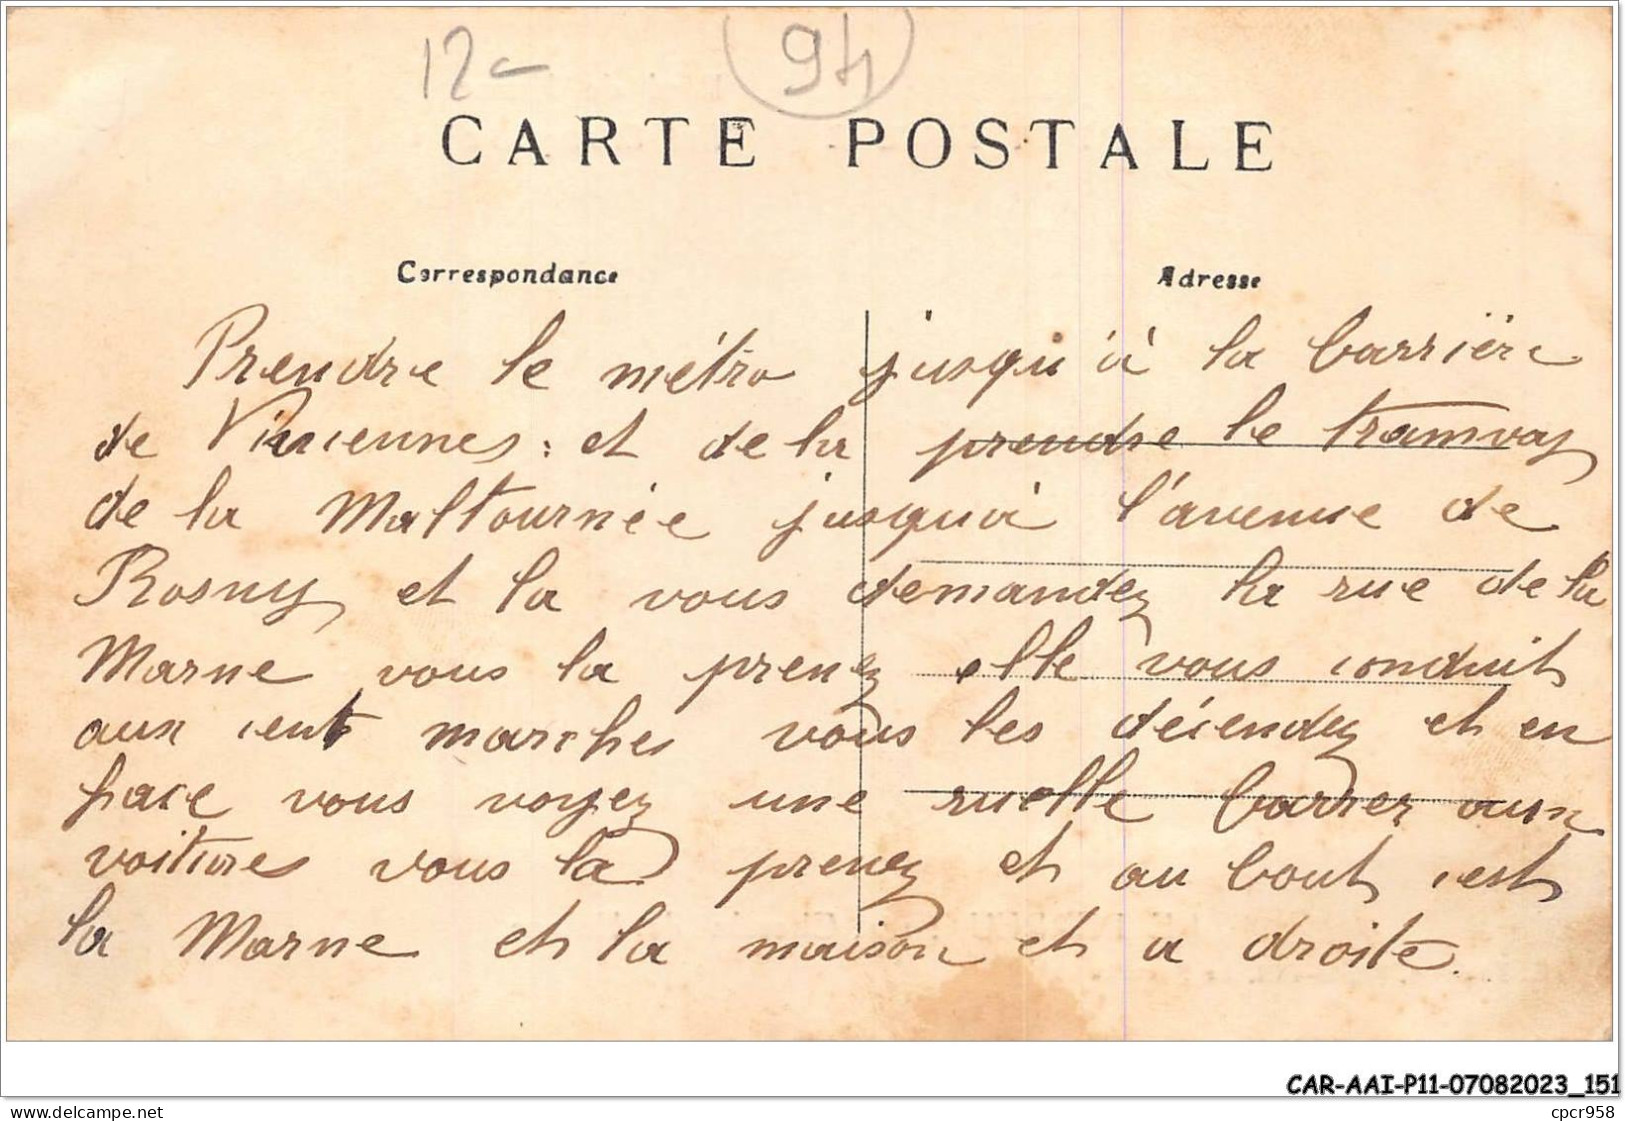 12-
94
CARTE POSTALE
Correspondance
Adresse
Prendre le métro jusqu'à la barrière
de Vinciennes : et de la prendre le tramvay
de la Maltournée jusqua l'avenue de
Rosny et la vous demandez la rue de la
Marne vous la prenez elle vous conduit
aux cent marches vous les décendez et en
face vous voyez une ruelle barrer aux
voitures vous la prenez et au bout cest
la Marne et la maison et a droite.
CAR-AAI-P11-07082023_151
https://www.delcampe.net
cpcr958